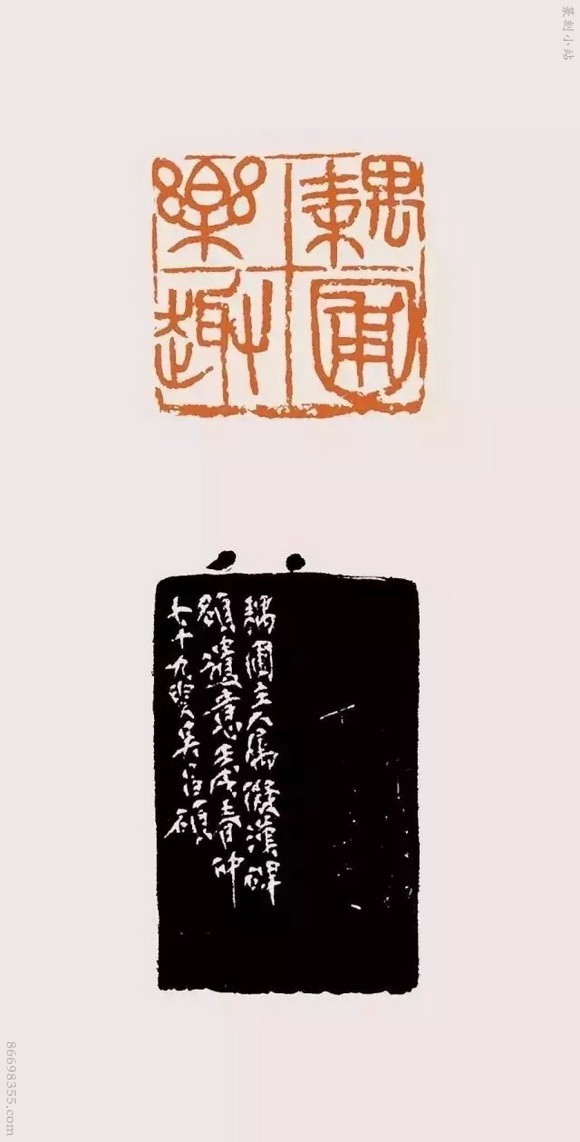 篆刻小站
耦圃
樂趣
耦圃主人屬擬漢碑
額遺意壬戌春仲
七十九叟吳昌碩
86698355.com